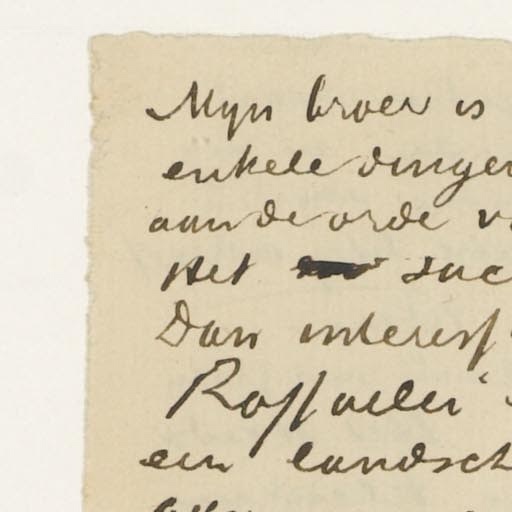 Mijn broer is
enkele dingen
aan de orde
Het suc
Dan interess
Raffaelli
een landsch